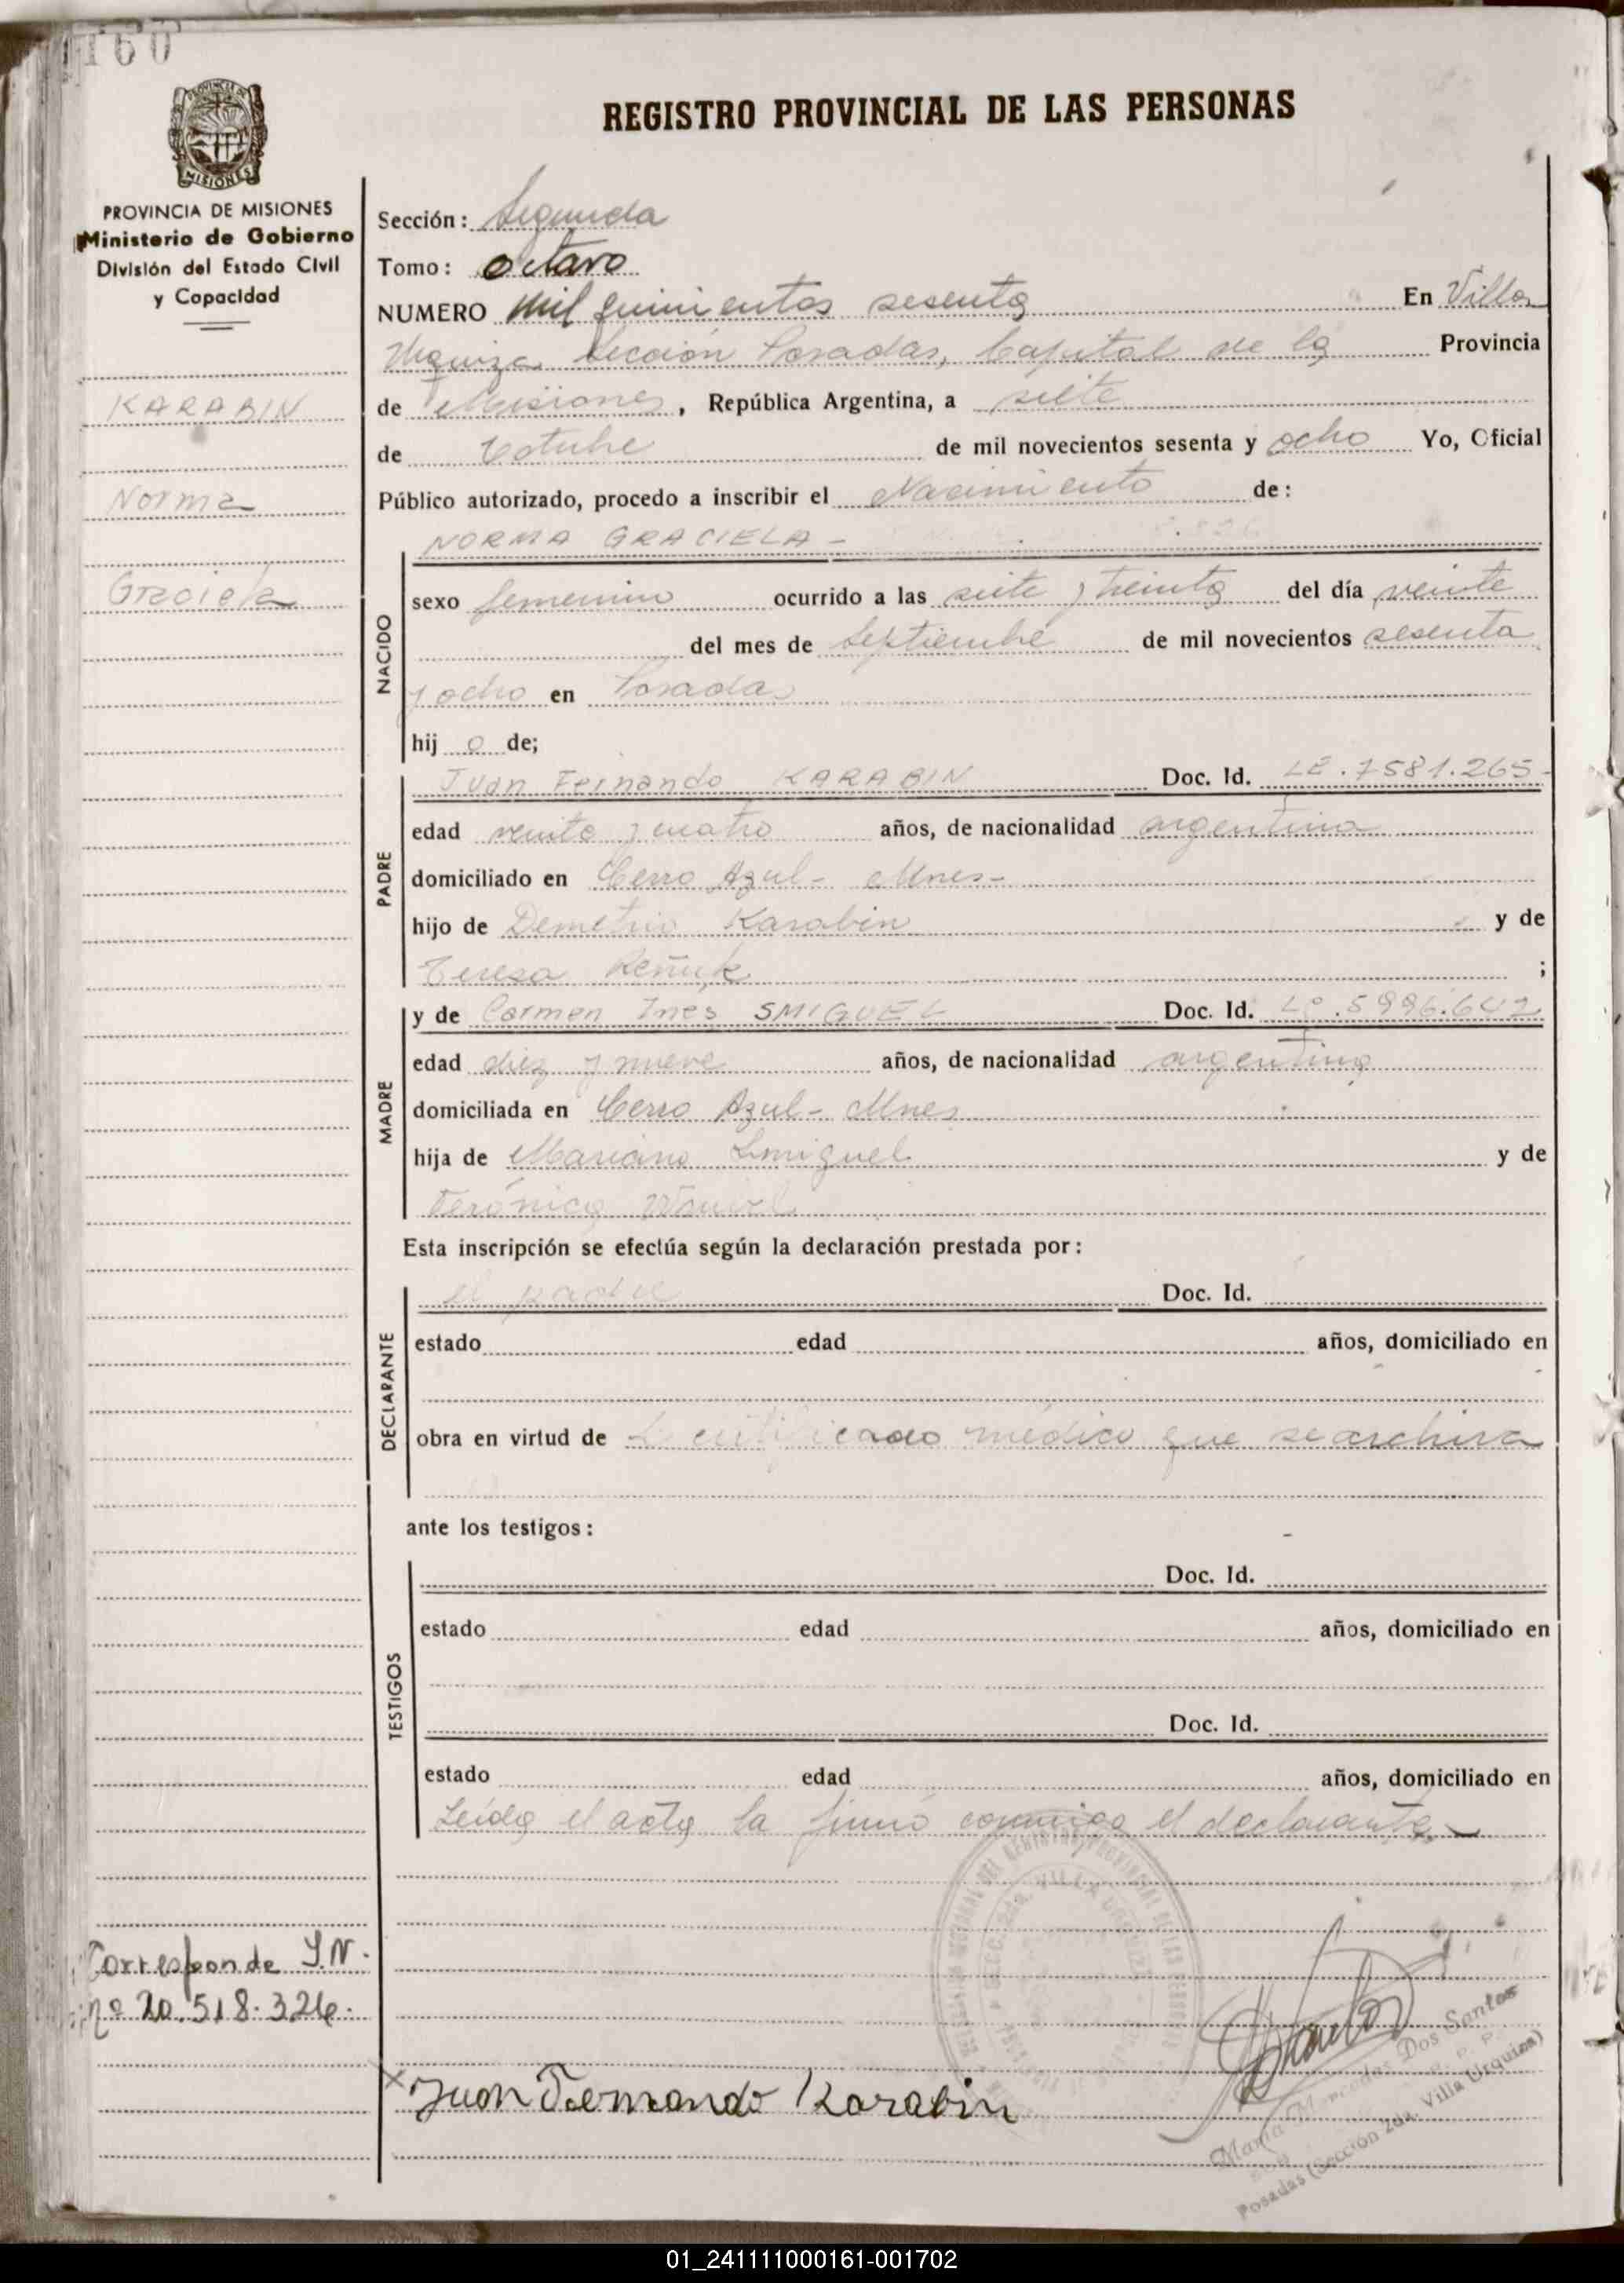 160
REGISTRO PROVINCIAL DE LAS PERSONAS
PROVINCIA DE MISIONES
Ministerio de Gobierno
División del Estado Civil
y Capacidad
KARABIN
Norma
Graciela
Sección: Segunda
Tomo: octavo
NUMERO mil quinientos sesenta En Villa
Urquiza Sección Posadas, Capital de la Provincia
de Misiones, República Argentina, a siete
de Octubre de mil novecientos sesenta y ocho Yo, Oficial
Público autorizado, procedo a inscribir el Nacimiento de:
NORMA GRACIELA -
NACIDO
sexo femenino ocurrido a las siete y treinta del día veinte
del mes de Septiembre de mil novecientos sesenta
y ocho en Posadas
hij o de;
PADRE
Juan Fernando KARABIN Doc. Id. LE.7581.265-
edad veinte y cuatro años, de nacionalidad argentina
domiciliado en Cerro Azul- Mnes-
hijo de Demetrio Karabin y de
Teresa ;
MADRE
y de Carmen Ines SMIGUEL Doc. Id. LC.5996.642
edad diez y nueve años, de nacionalidad argentina
domiciliada en Cerro Azul- Mnes
hija de Mariano Smiguel y de
Verónica
Esta inscripción se efectúa según la declaración prestada por:
DECLARANTE
el padre Doc. Id.
estado edad años, domiciliado en
obra en virtud de certificado médico que se archiva
ante los testigos:
TESTIGOS
Doc. Id.
estado edad años, domiciliado en
Doc. Id.
estado edad años, domiciliado en
Leída el acta la firmó conmigo el declarante
Corresponde I.N.
nº 20.518.326.
Juan Fernando Karabin
Maria Mercedes Dos Santos
Posadas (Sección 2da. Villa Urquiza)
01_241111000161-001702